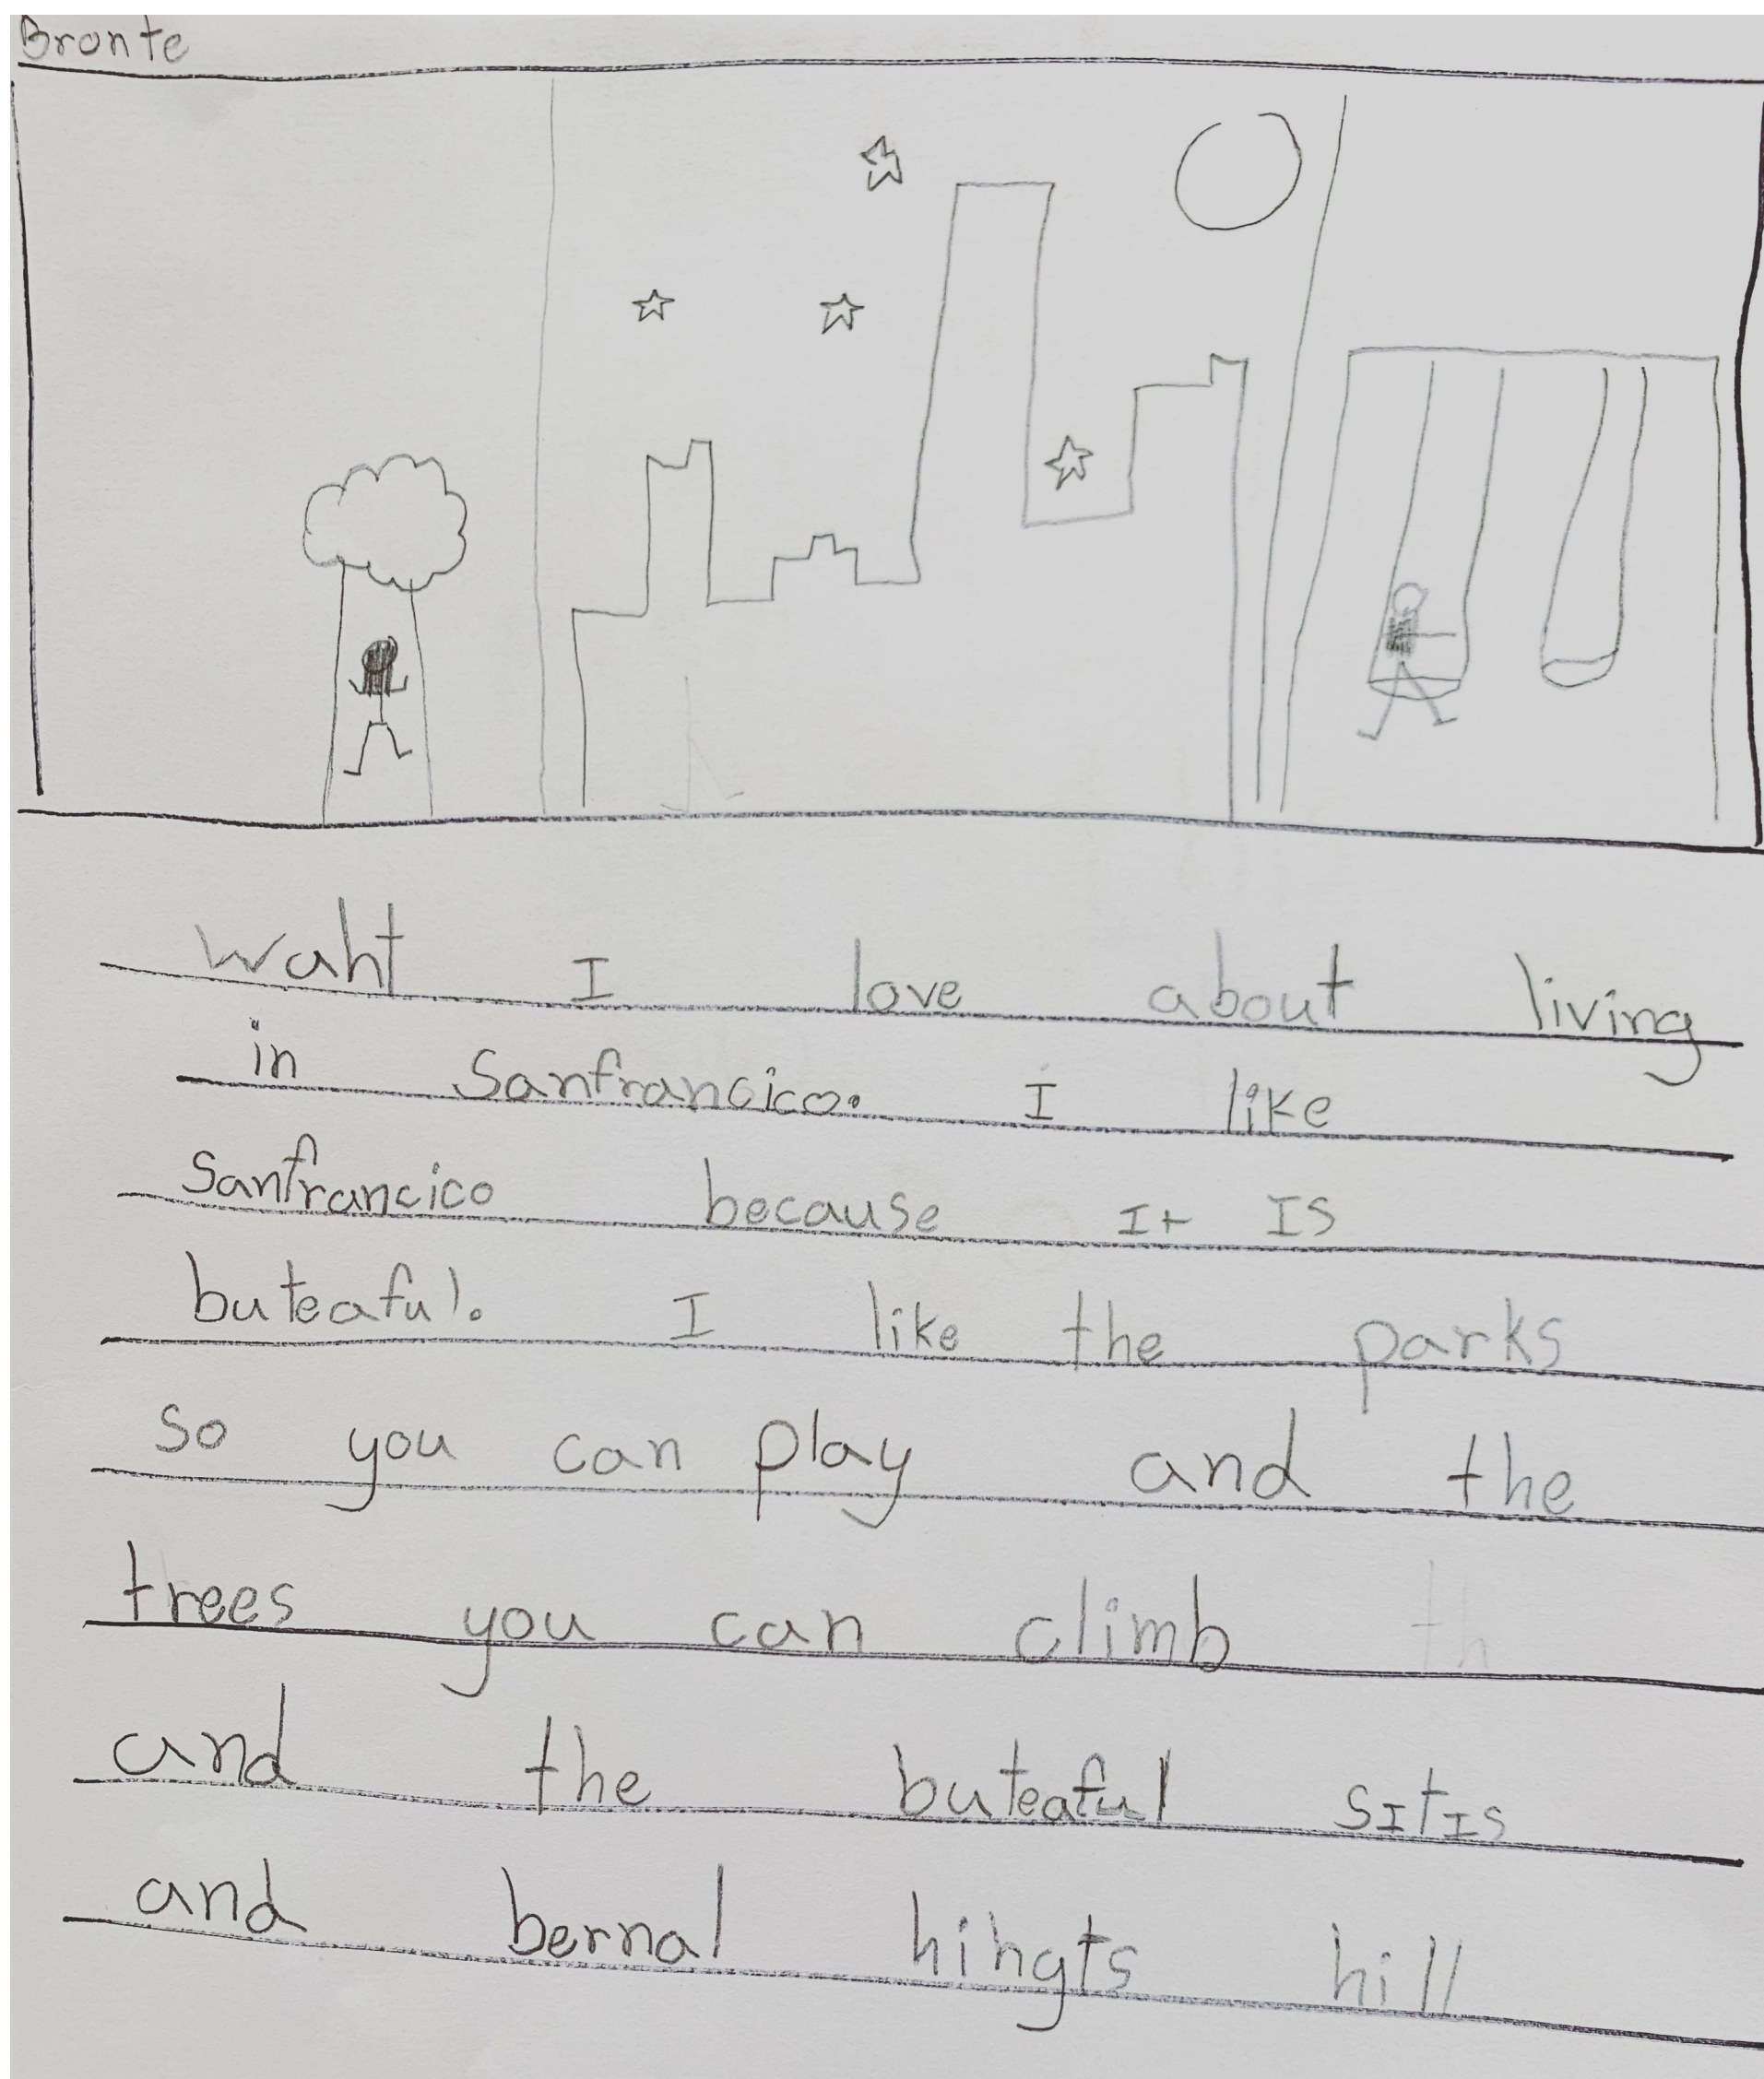 Bronte
waht I love about living
in Sanfrancico. I like
Sanfrancico because It IS
buteaful. I like the parks
so you can play and the
trees you can climb th
and the buteaful sItIs
and bernal hihgts hill